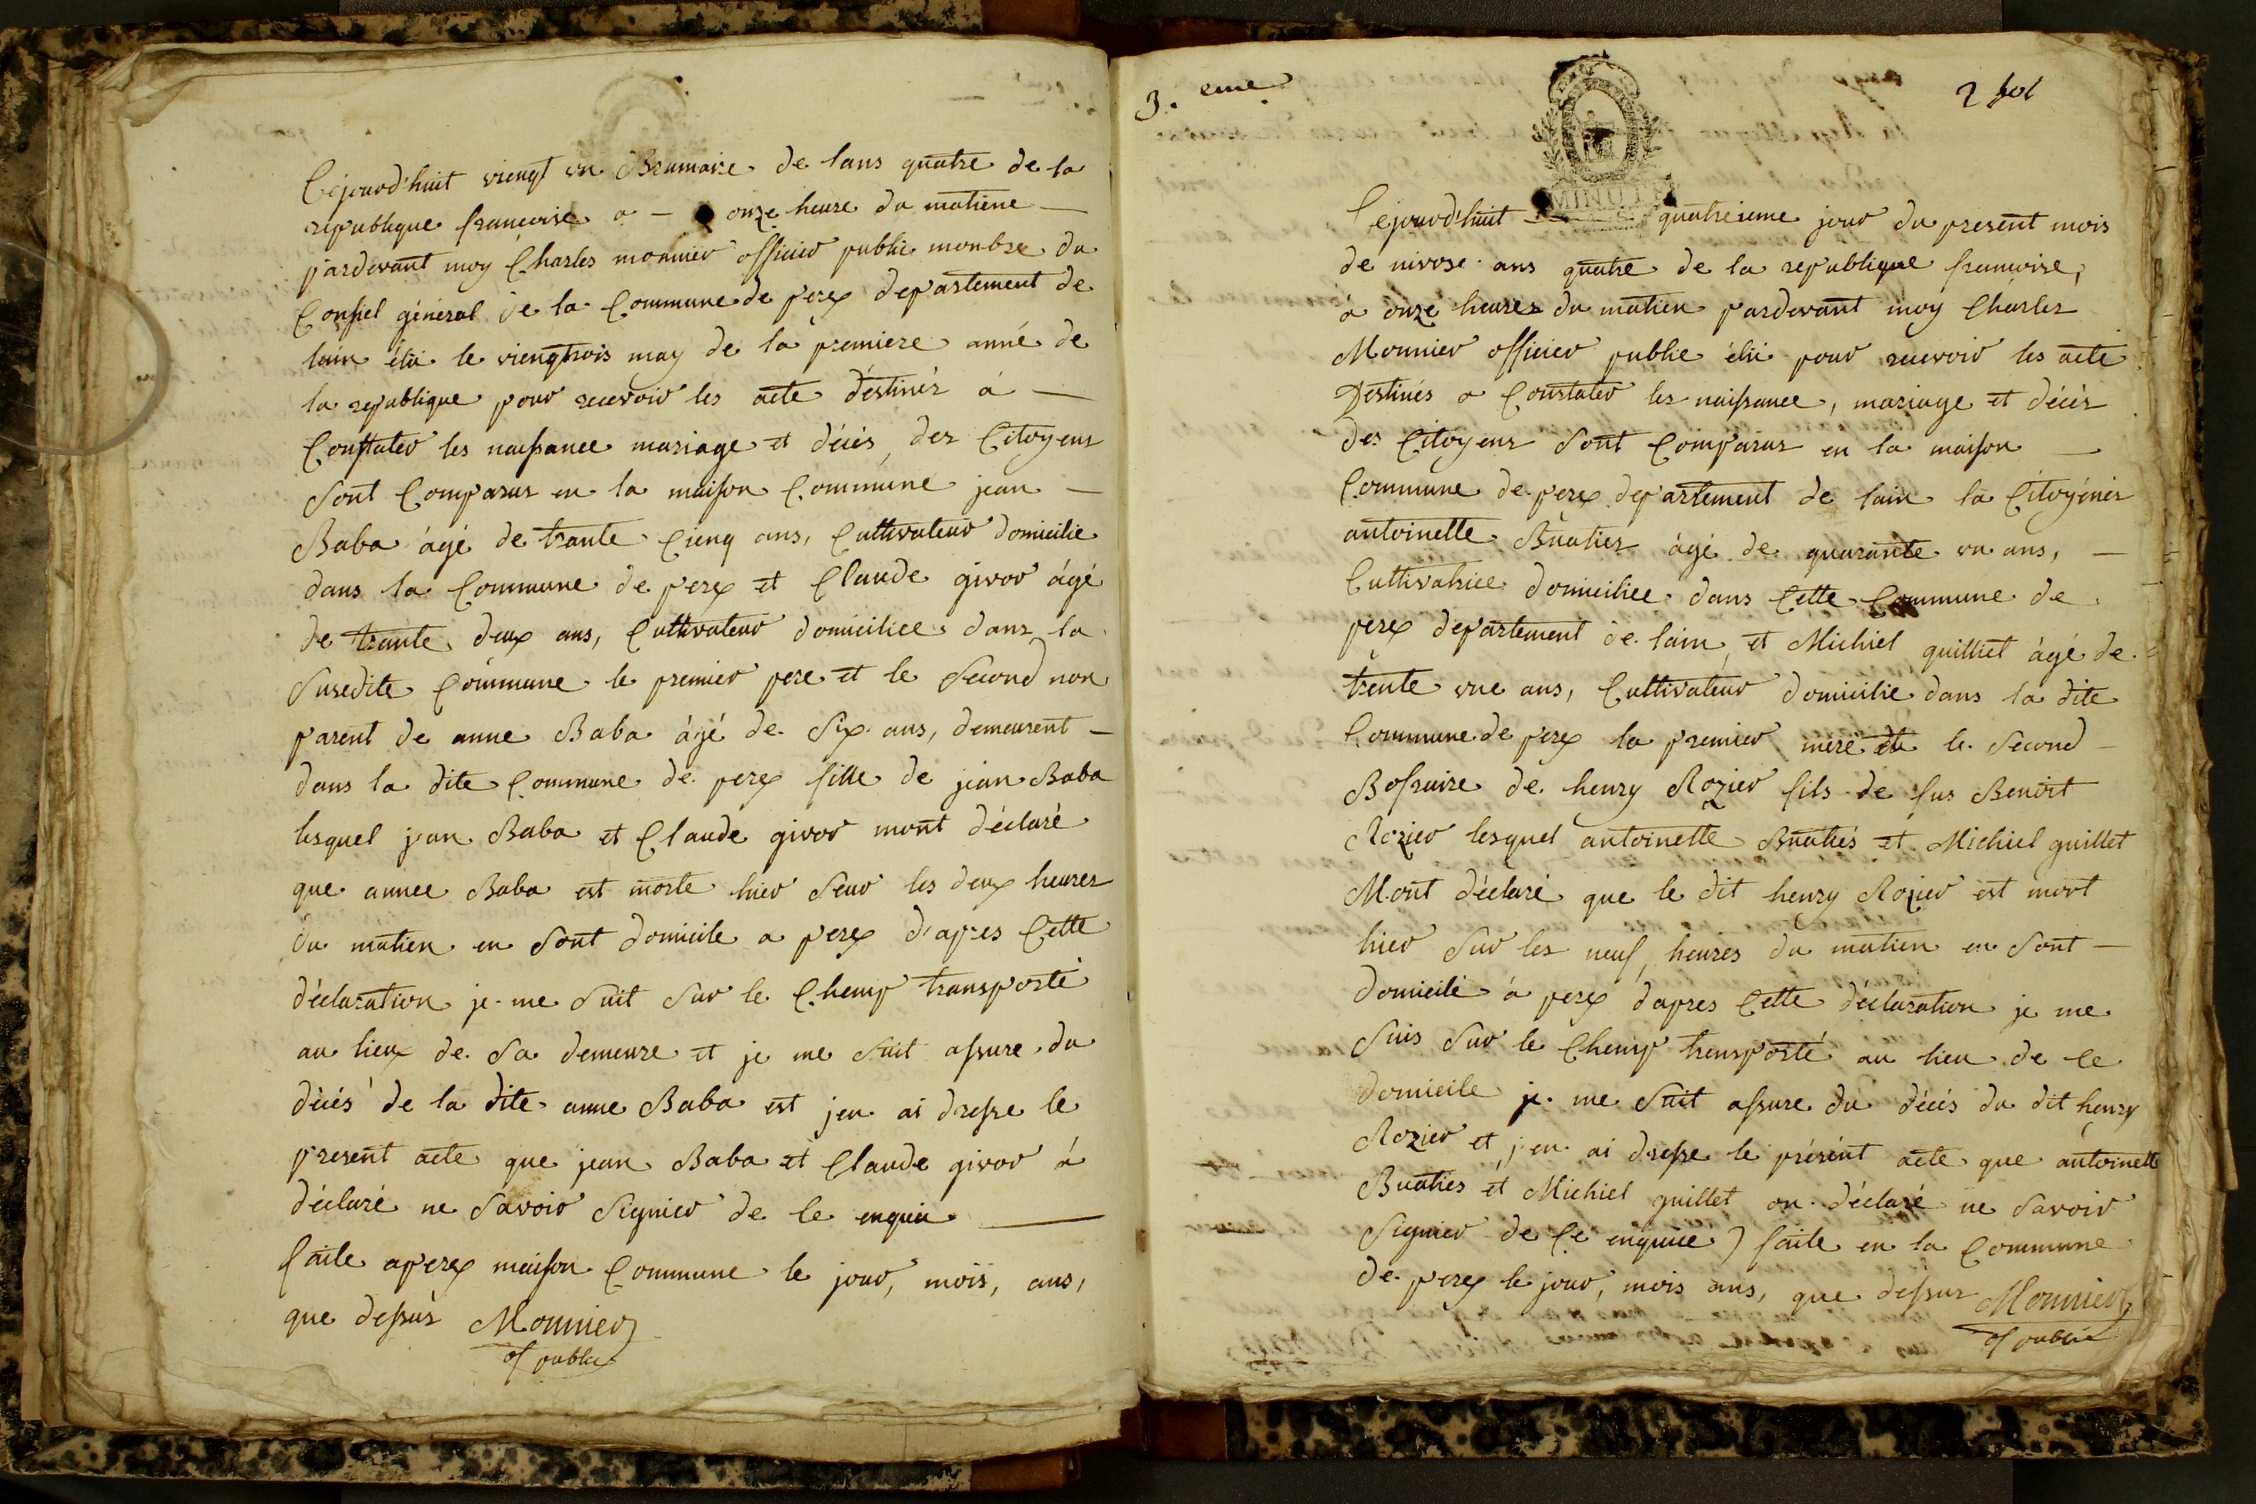 Cejourd'huit viengt un Brumaire de lans quatre de la
republique francoise a — onze heure du matiene —
pardevant moy Charles monnier officier public monbre du
Consiel général de la Commune de perex departement de
lain élü le viengtrois may de la premiere anné de
la republique pour recevoir les acte déstinés à —
Constater les naissance mariage et décés des Citoyens
Sont Comparus en la maison Commune jean —
Baba âgé de trante Cienq ans, Cultivateur domicilie
dans la Commune de perex et Claude giror âgé
de trante deux ans, Cultivateur domiciliee dans la
Susedite Commune le premier pere et le Second non
parent de anne Baba âgé de Six ans, demeurent —
dans la dite Commune de perex fille de jean Baba
lesquel jean Baba et Claude giror mont déclaré
que annee Baba est morte hier Seur les deux heures
du matien en Sont domicile a perex d'apres Cette
déclaration je me Suit Sur le Chemp transporté
au lieux de Sa demeure et je me Suit assure du
décés de la dite anne Baba est jen ai dresse le
present acte que jean Baba et Claude giror à
déclaré ne Savoir Signier de Ce enquis —
faite aperex maison Commune le jour, mois, ans,
que dessus Monnier
of public
3.eme
2 fol
MINUTE
Cejourd'huit — quatrieme jour du present mois
de nivose ans quatre de la republique francoise,
à onze heures du matien pardevant moy Charles
Monnier officier public élü pour recevoir les acte
Destinés a Constater les naissance, mariage et décés
des Citoyens Sont Comparus en la maison —
Commune de perex departement de lain la Citoyénés
antoinette Buatiez âgé de quarante un ans, —
Cultivatrice domiciliee dans Cette Commune de
perex departement de lain, et Michiel guilliet âgé de
trente une ans, Cultivateur domicilie dans la dite
Commune de perex la premier mere et le Second —
Bofraire de henry Rozier fils de fus Benoit
Rozier lesquel antoinette Buatiés et Michiel guillet
Mont déclaré que le dit henry Rozier est mort
hier Sur les neuf heures du matien en Sont —
domicile à perex dapres Cette déclaration je me
Suis Sur le Chemp trensporté au lieu de Ce
domicile je me Suit assure du décés du dit henry
Rozier et jen ai dresse le présent acte que antoinett
Buaties et Michiel guillet on déclaré ne Savoir
Signier de Ce enquice) faite en la Commune
de perex le jour, mois ans, que dessus Monnier
of public